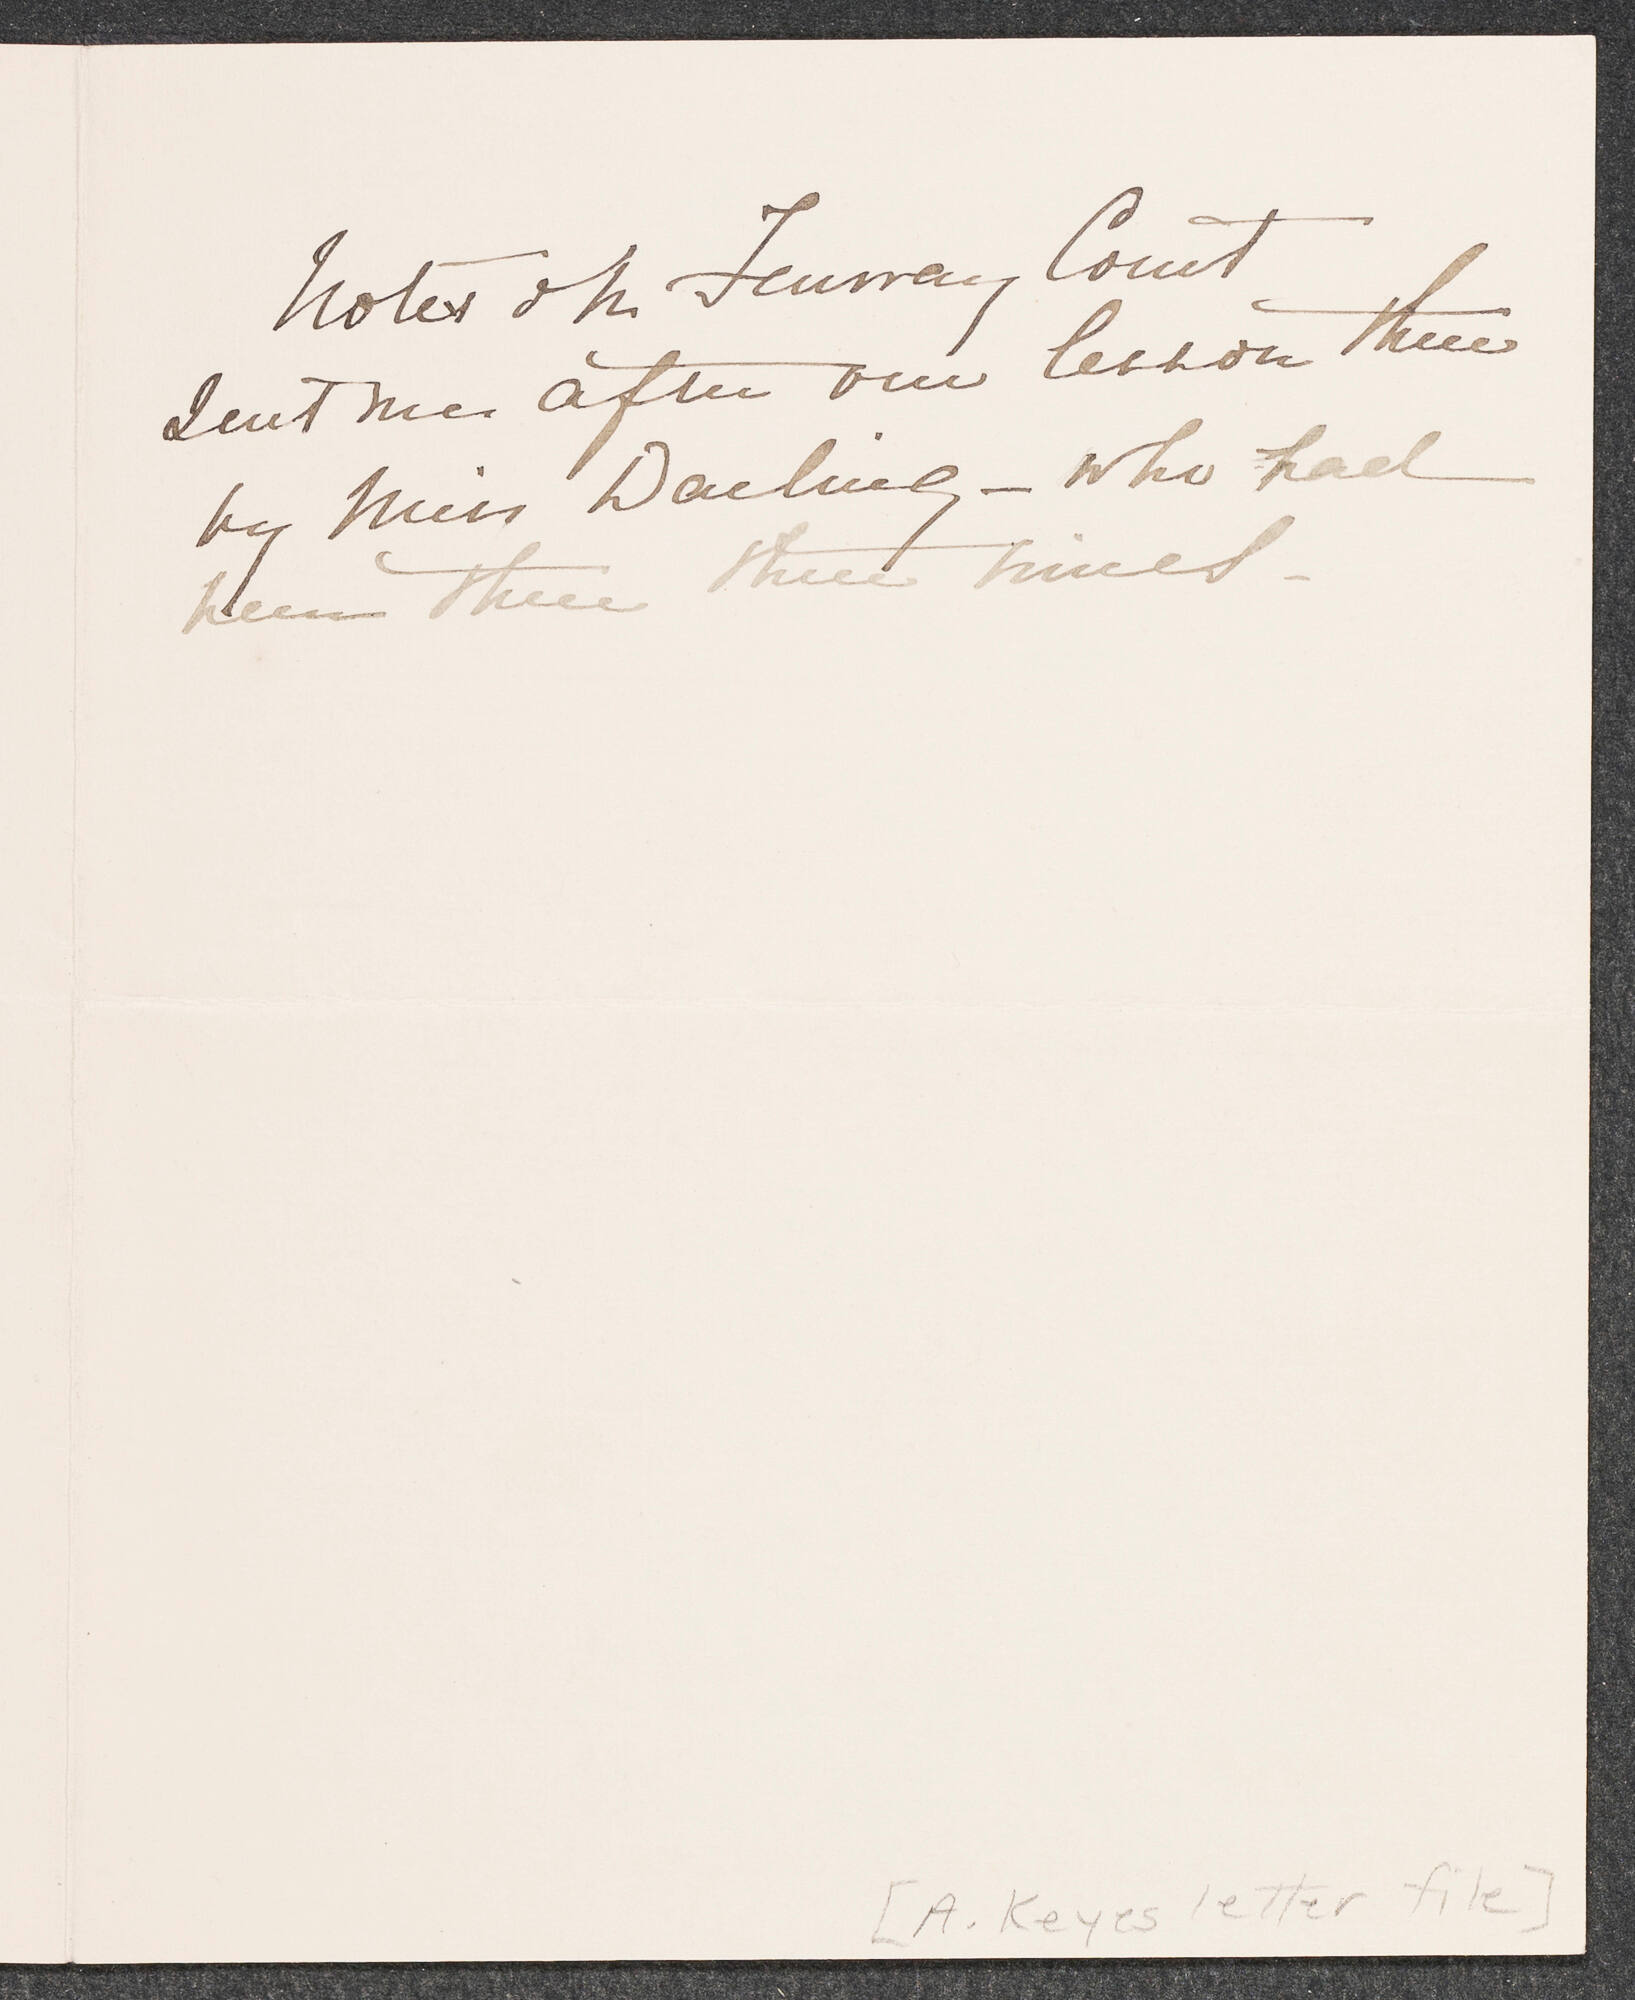 Notes on Fenway Court
sent me after our lesson there
by Miss Darling – who had
been there three times –
[A. Keyes letter file]